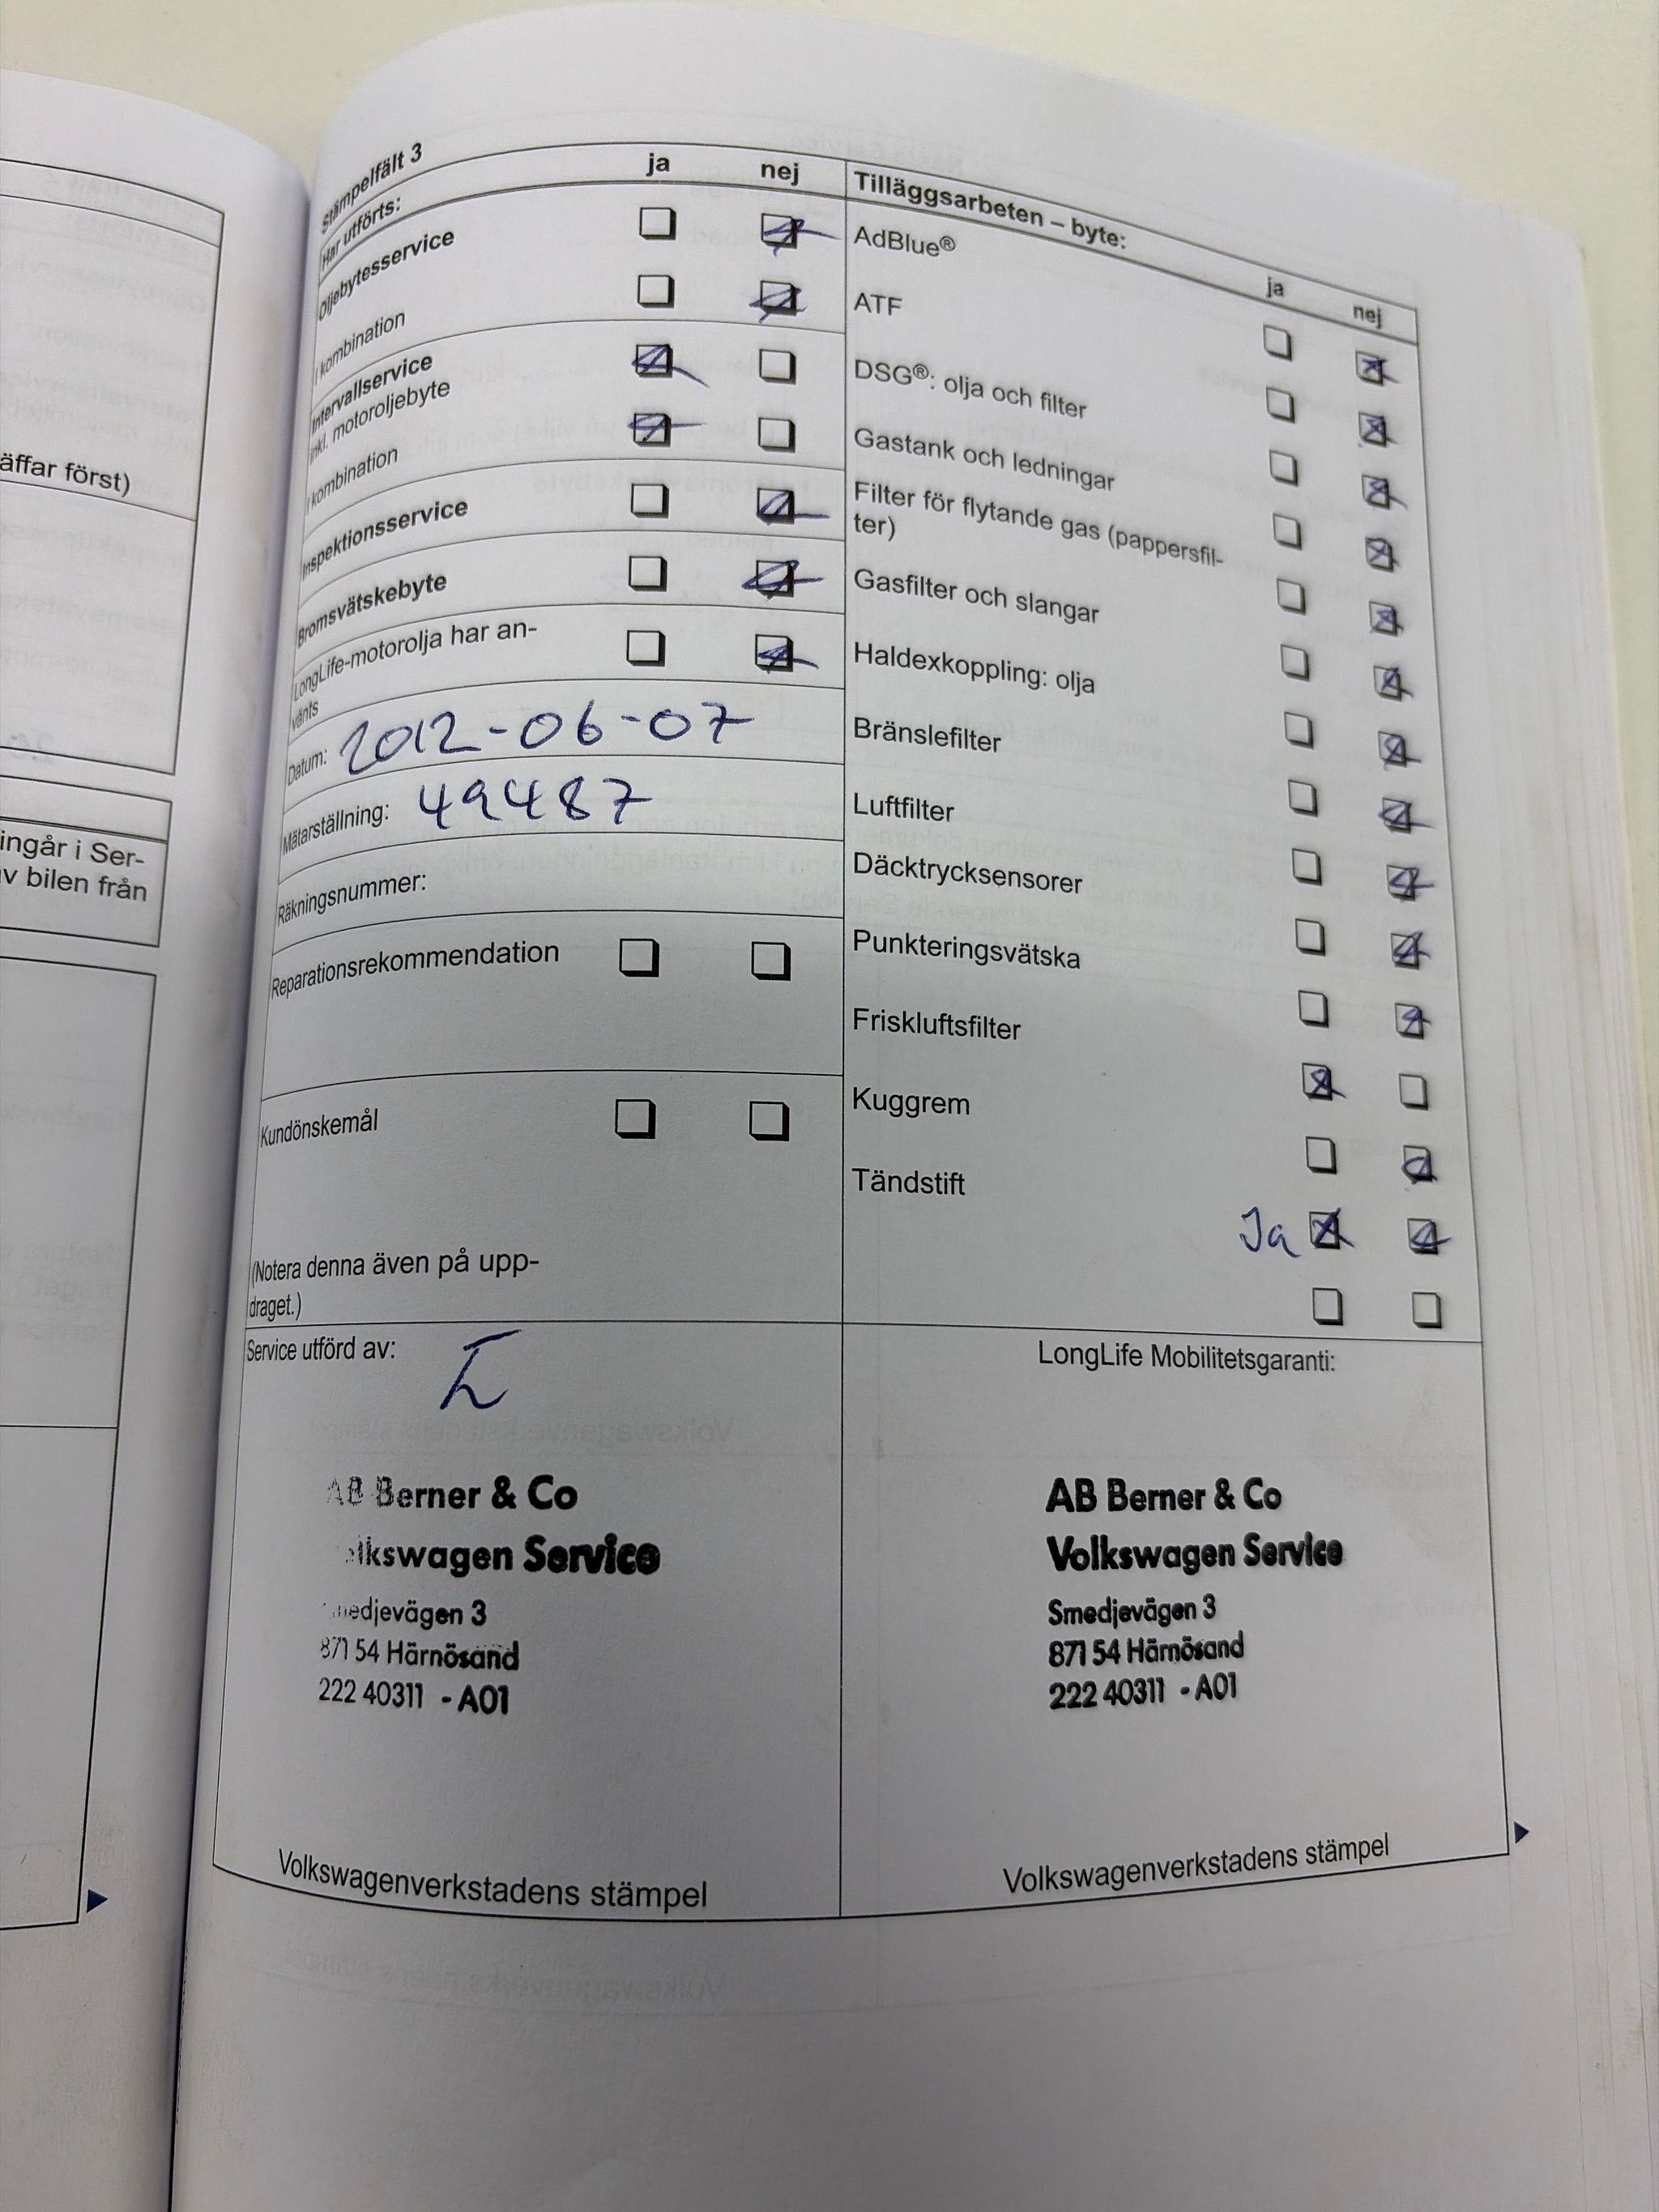 äffar först)
ingår i Ser-
v bilen från
Stämpelfält 3
Har utförts:
ja nej
Oljebytesservice
I kombination
Intervallservice
inkl. motoroljebyte
I kombination
Inspektionsservice
Bromsvätskebyte
LongLife-motorolja har an-
vänts
Datum: 2012-06-07
Mätarställning: 49487
Räkningsnummer:
Reparationsrekommendation
Kundönskemål
(Notera denna även på upp-
draget.)
Tilläggsarbeten – byte:
ja nej
AdBlue®
ATF
DSG®: olja och filter
Gastank och ledningar
Filter för flytande gas (pappersfil-
ter)
Gasfilter och slangar
Haldexkoppling: olja
Bränslefilter
Luftfilter
Däcktrycksensorer
Punkteringsvätska
Friskluftsfilter
Kuggrem
Tändstift
Ja
Service utförd av:
AB Berner & Co
Volkswagen Service
Smedjevägen 3
871 54 Härnösand
222 40311 - A01
Volkswagenverkstadens stämpel
LongLife Mobilitetsgaranti:
AB Berner & Co
Volkswagen Service
Smedjevägen 3
871 54 Härnösand
222 40311 - A01
Volkswagenverkstadens stämpel